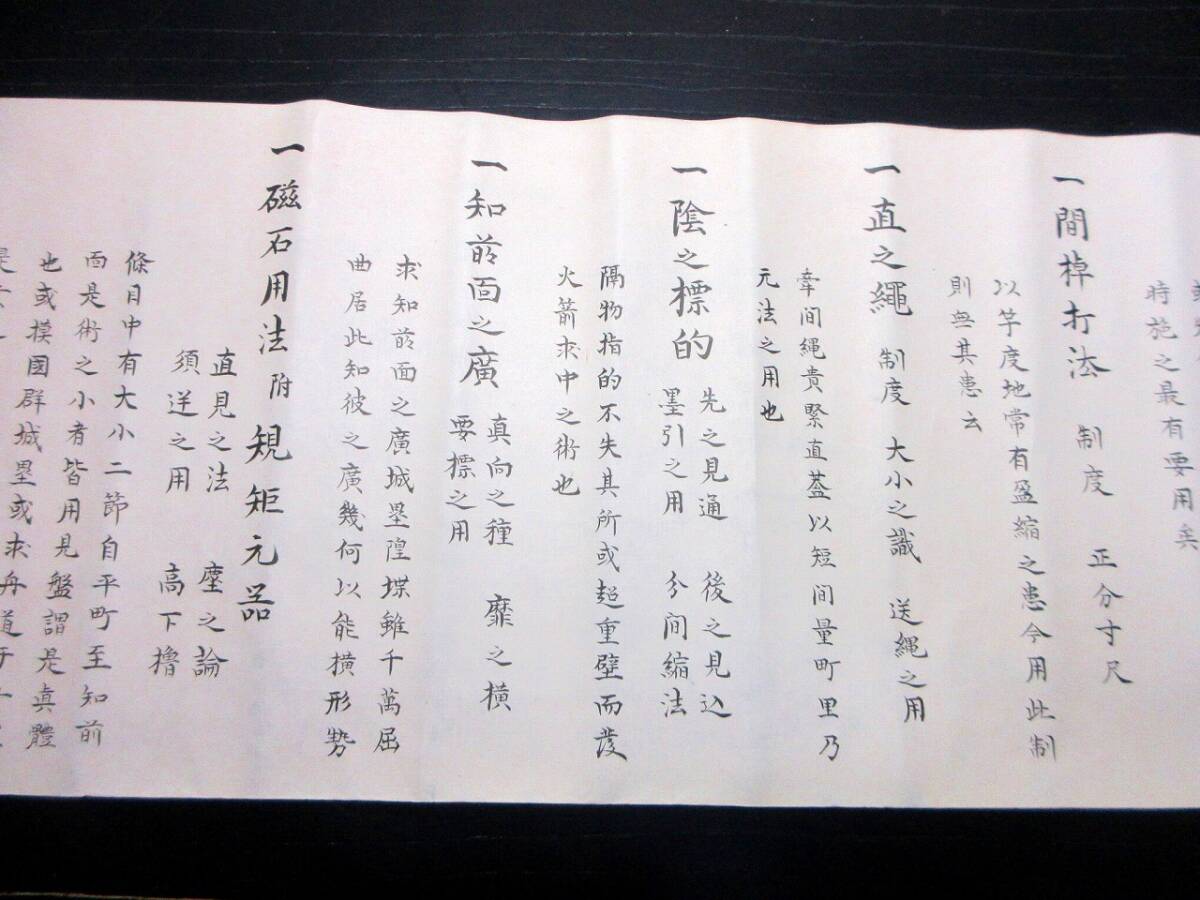 時施之最有要用矣
一間棹打法 制度 正分寸尺
以竿度地常有盈縮之患今用此制
則無其患云
一直之繩 制度 大小之識 送縄之用
牽間縄貴緊直蓋以短間量町里乃
元法之用也
一陰之標的 先之見通 後之見込
墨引之用 分間縮法
隔物指的不失其所或超重壁而發
火箭求中之術也
一知前面之廣 真向之種 靡之横
要標之用
求知前面之廣城塁隍堞雖千萬屈
曲居此知彼之廣幾何以能横形勢
一磁石用法附規矩元器
直見之法 塵之論
須逆之用 高下擔
條目中有大小二節自平町至知前
面是術之小者皆用見盤謂是真體
也或摸國群城塁或求舟道于